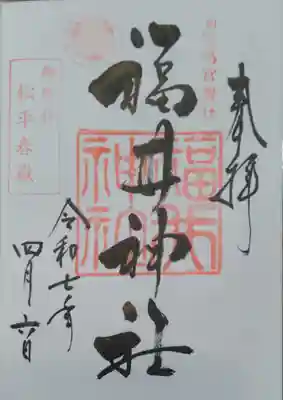 奉拝
福井神社
福井神社
御祭神
松平春嶽
令和七年
四月六日